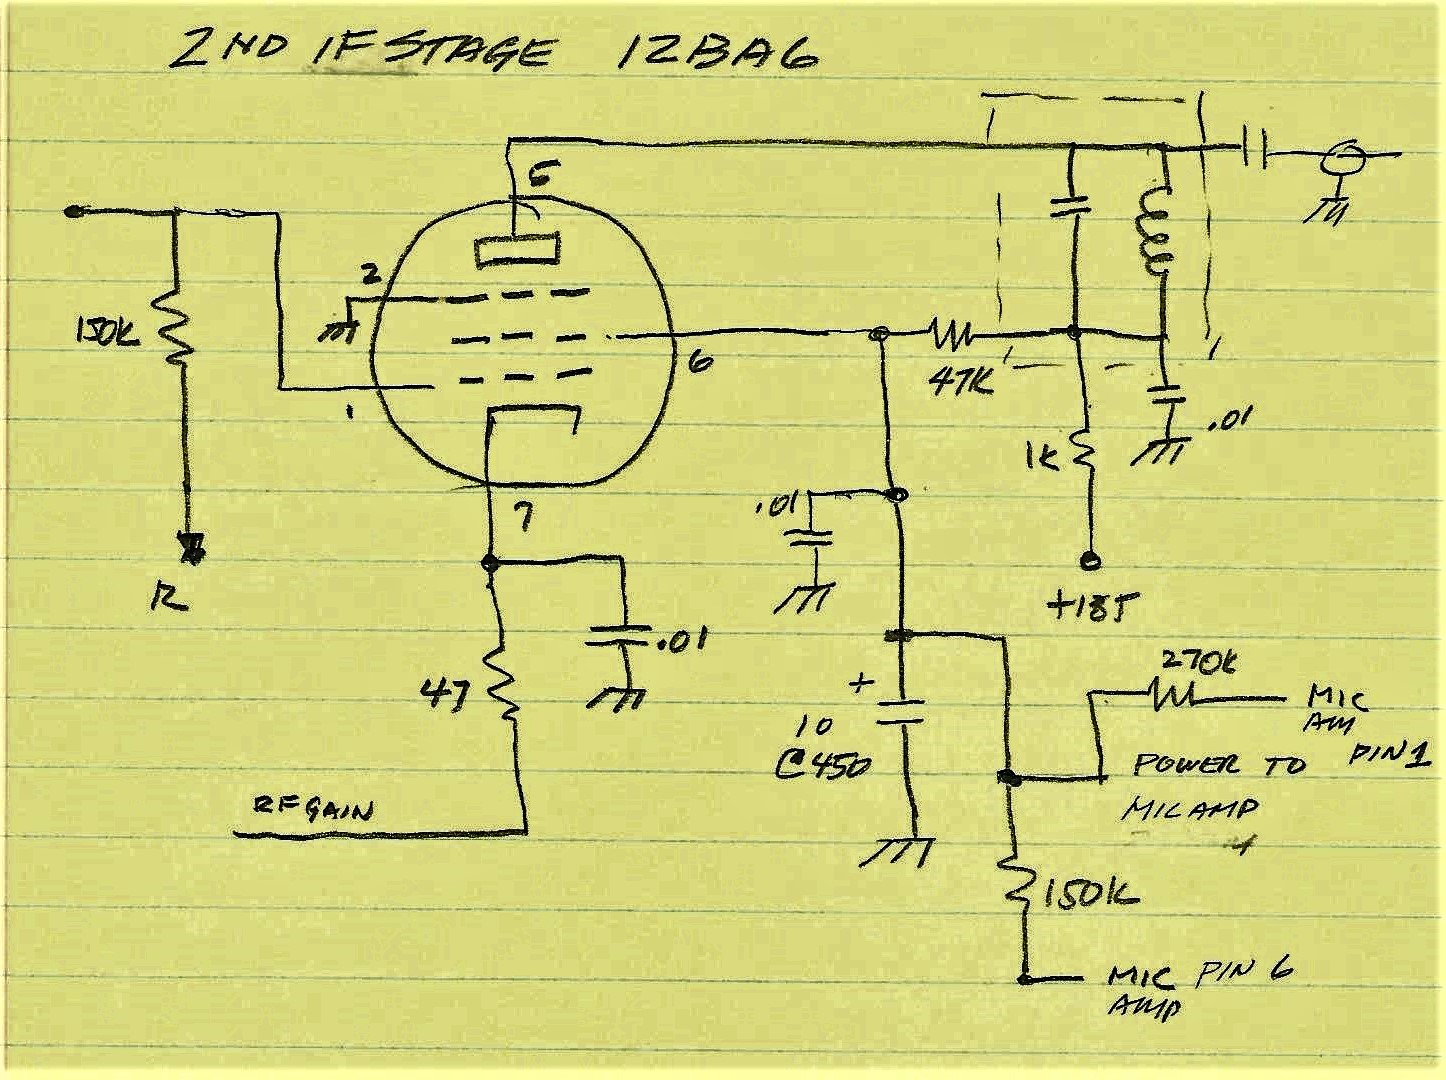 2ND IF STAGE 12BA6
5
2
150K
6
47K
1
.01
1K
.01
7
R
+185
.01
270K
47
+
MIC
10
AM PIN 1
@450
POWER TO
RF GAIN
MIC AMP
150K
MIC PIN 6
AMP